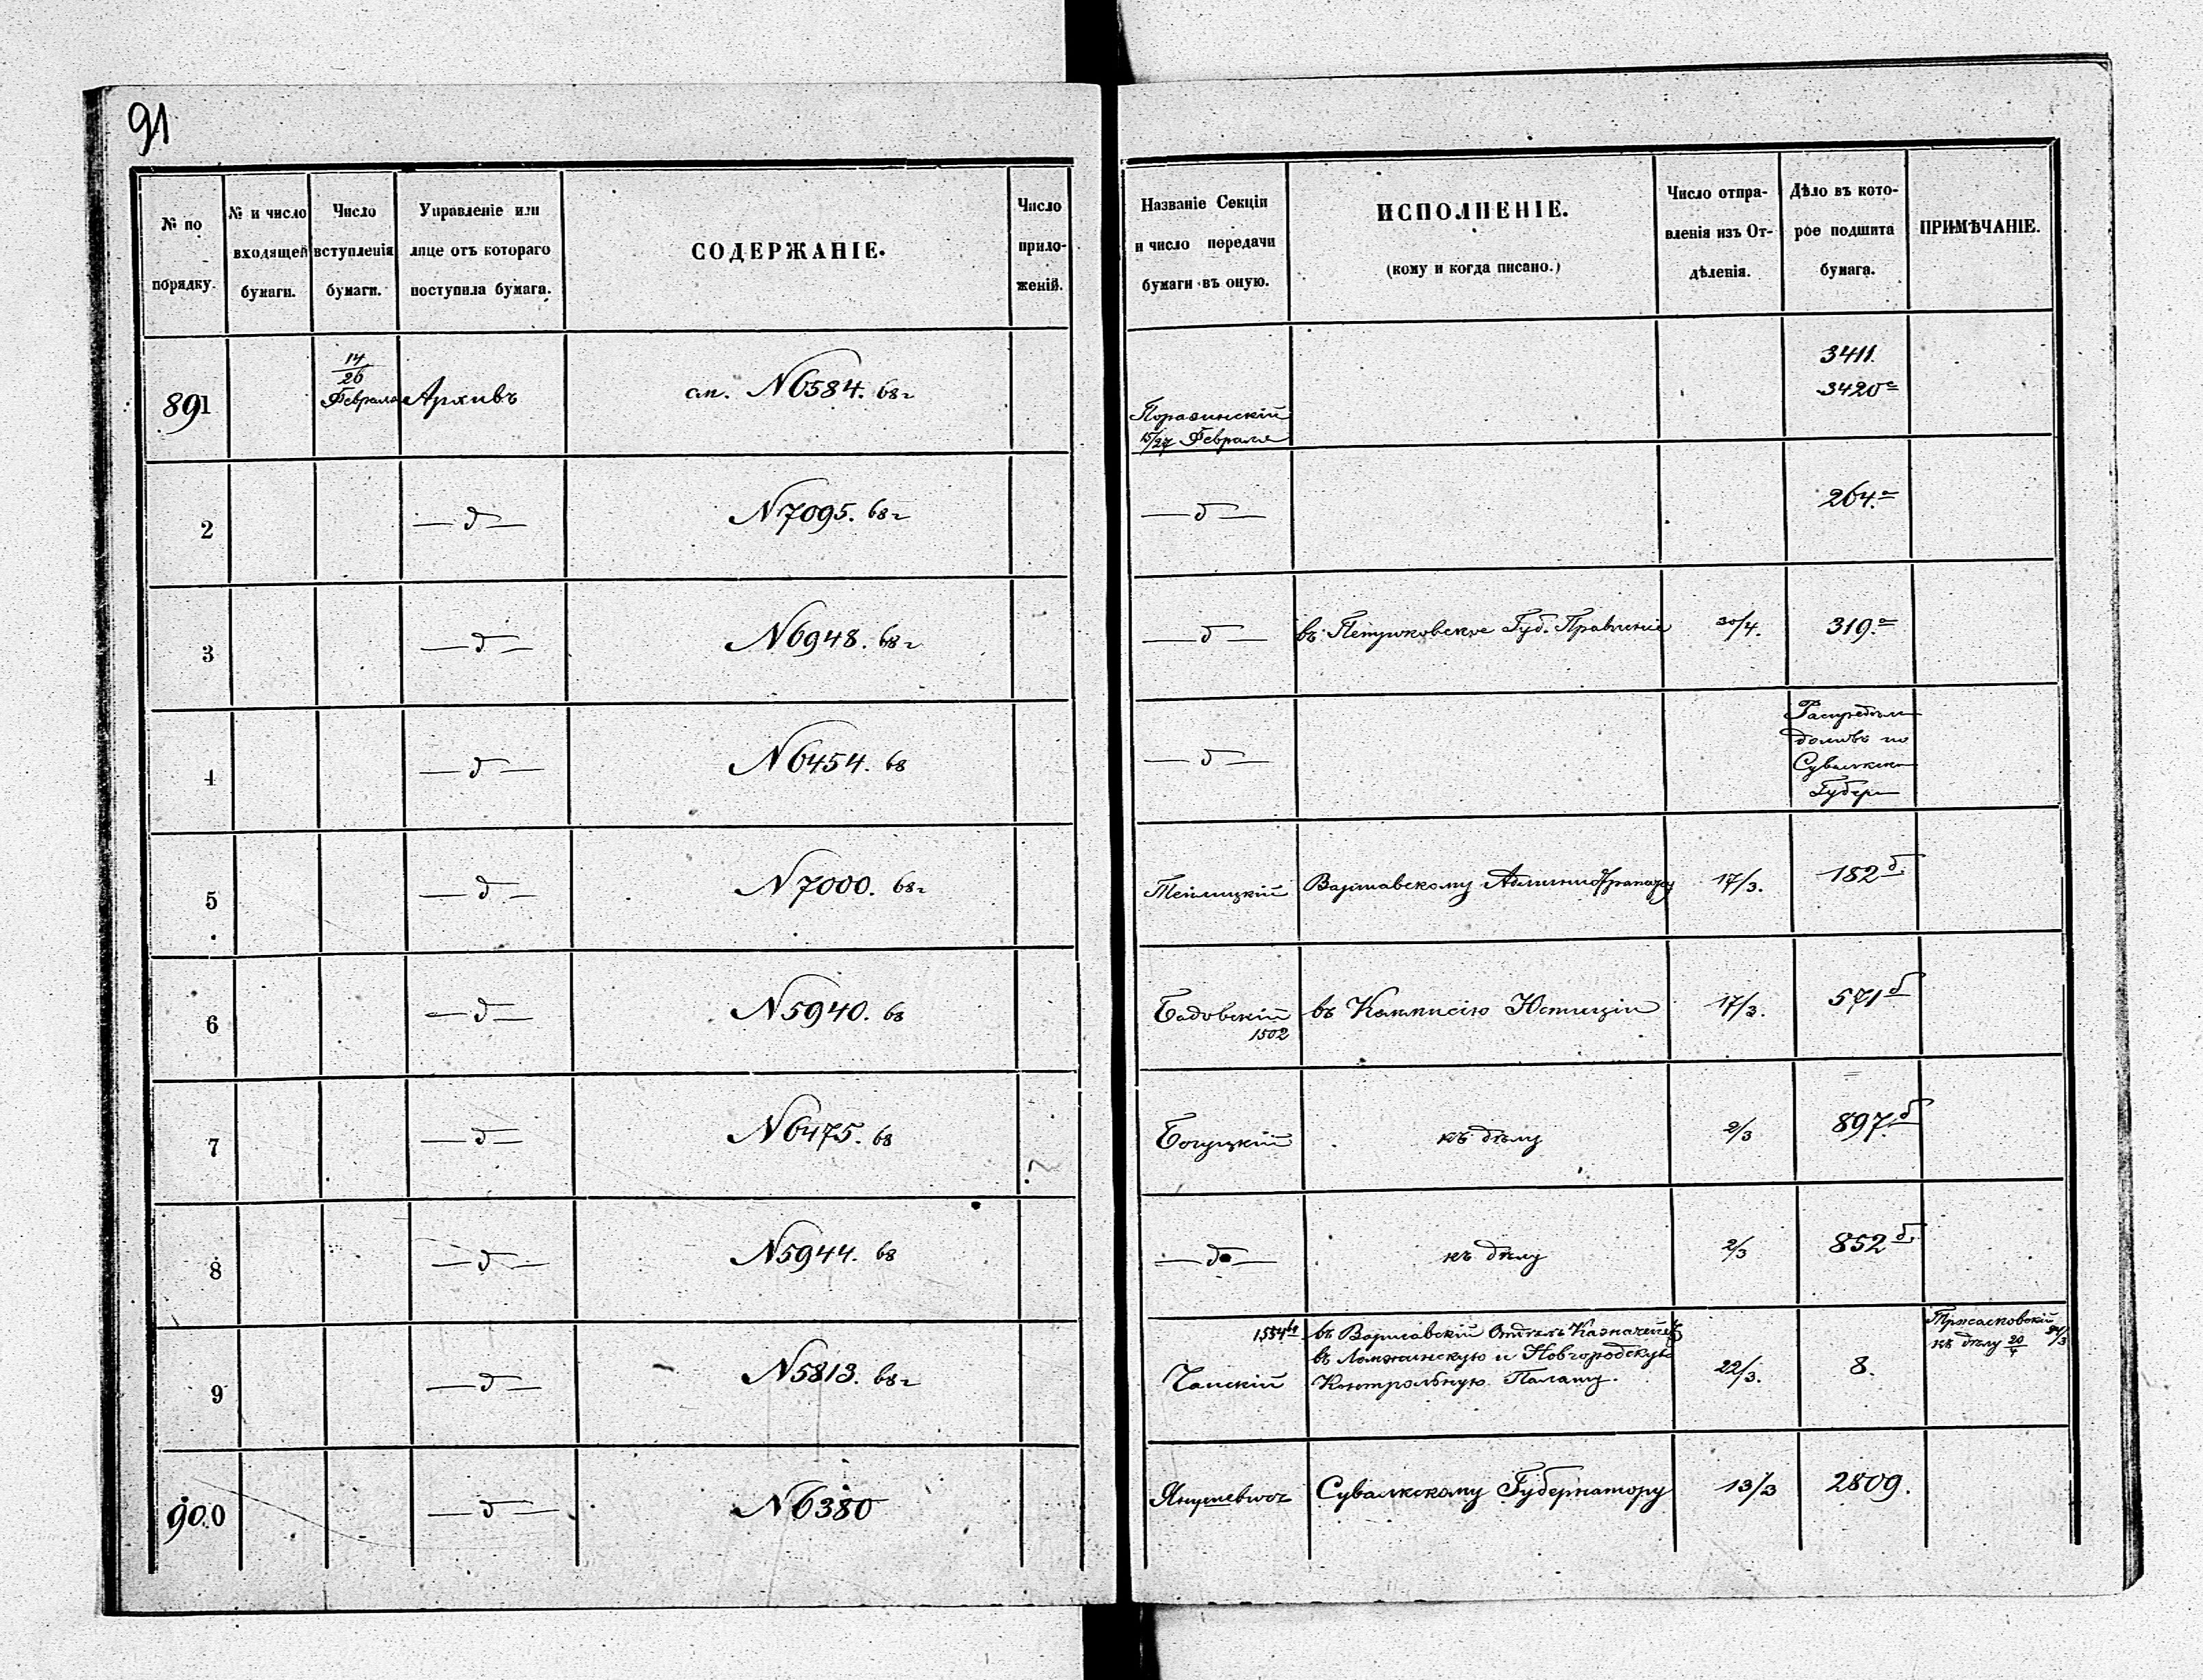 91
№ по порядку.
№ и число входящей бумаги.
Число вступленія бумаги.
Управленіе или лице отъ котораго поступила бумага.
СОДЕРЖАНІЕ.
Число приложеній.
Названіе Секціи и число передачи бумаги въ оную.
ИСПОЛНЕНІЕ.
(кому и когда писано.)
Число отправленія изъ Отдѣленія.
Дѣло въ которое подшита бумага.
ПРИМѢЧАНІЕ.
891 14/26 Февраля Архивъ см. N6584. 68г 15/27 Февраля 3411. 3420а
2 —д— N7095. 68г —д— 264.а
3 —д— N6948. 68г —д— въ Губ. Правленіе 30/4. 319.а
4 —д— N6454. 68 —д— по Сувалкско Губер
5 —д— N7000. 68г Варшавскому Администратору 17/3. 182б
6 —д— N5940. 68 Бадовскій 1502 въ Коммисію Юстиціи 17/3. 571б
7 —д— N6475. 68 Богуцкій къ дѣлу 2/3 897.б
8 —д— N5944. 68 —д— къ дѣлу 2/3 852б
9 —д— N5813. 68г 1554 Чамскій въ Варшавскій Отдѣлъ Казначейст
въ Ломжинскую и Новгородскую
Контрольную Палату. 22/3. 8. къ дѣлу 20/4
900 —д— N6380 Янушевичъ Сувалкскому Губернатору 13/3 2809.